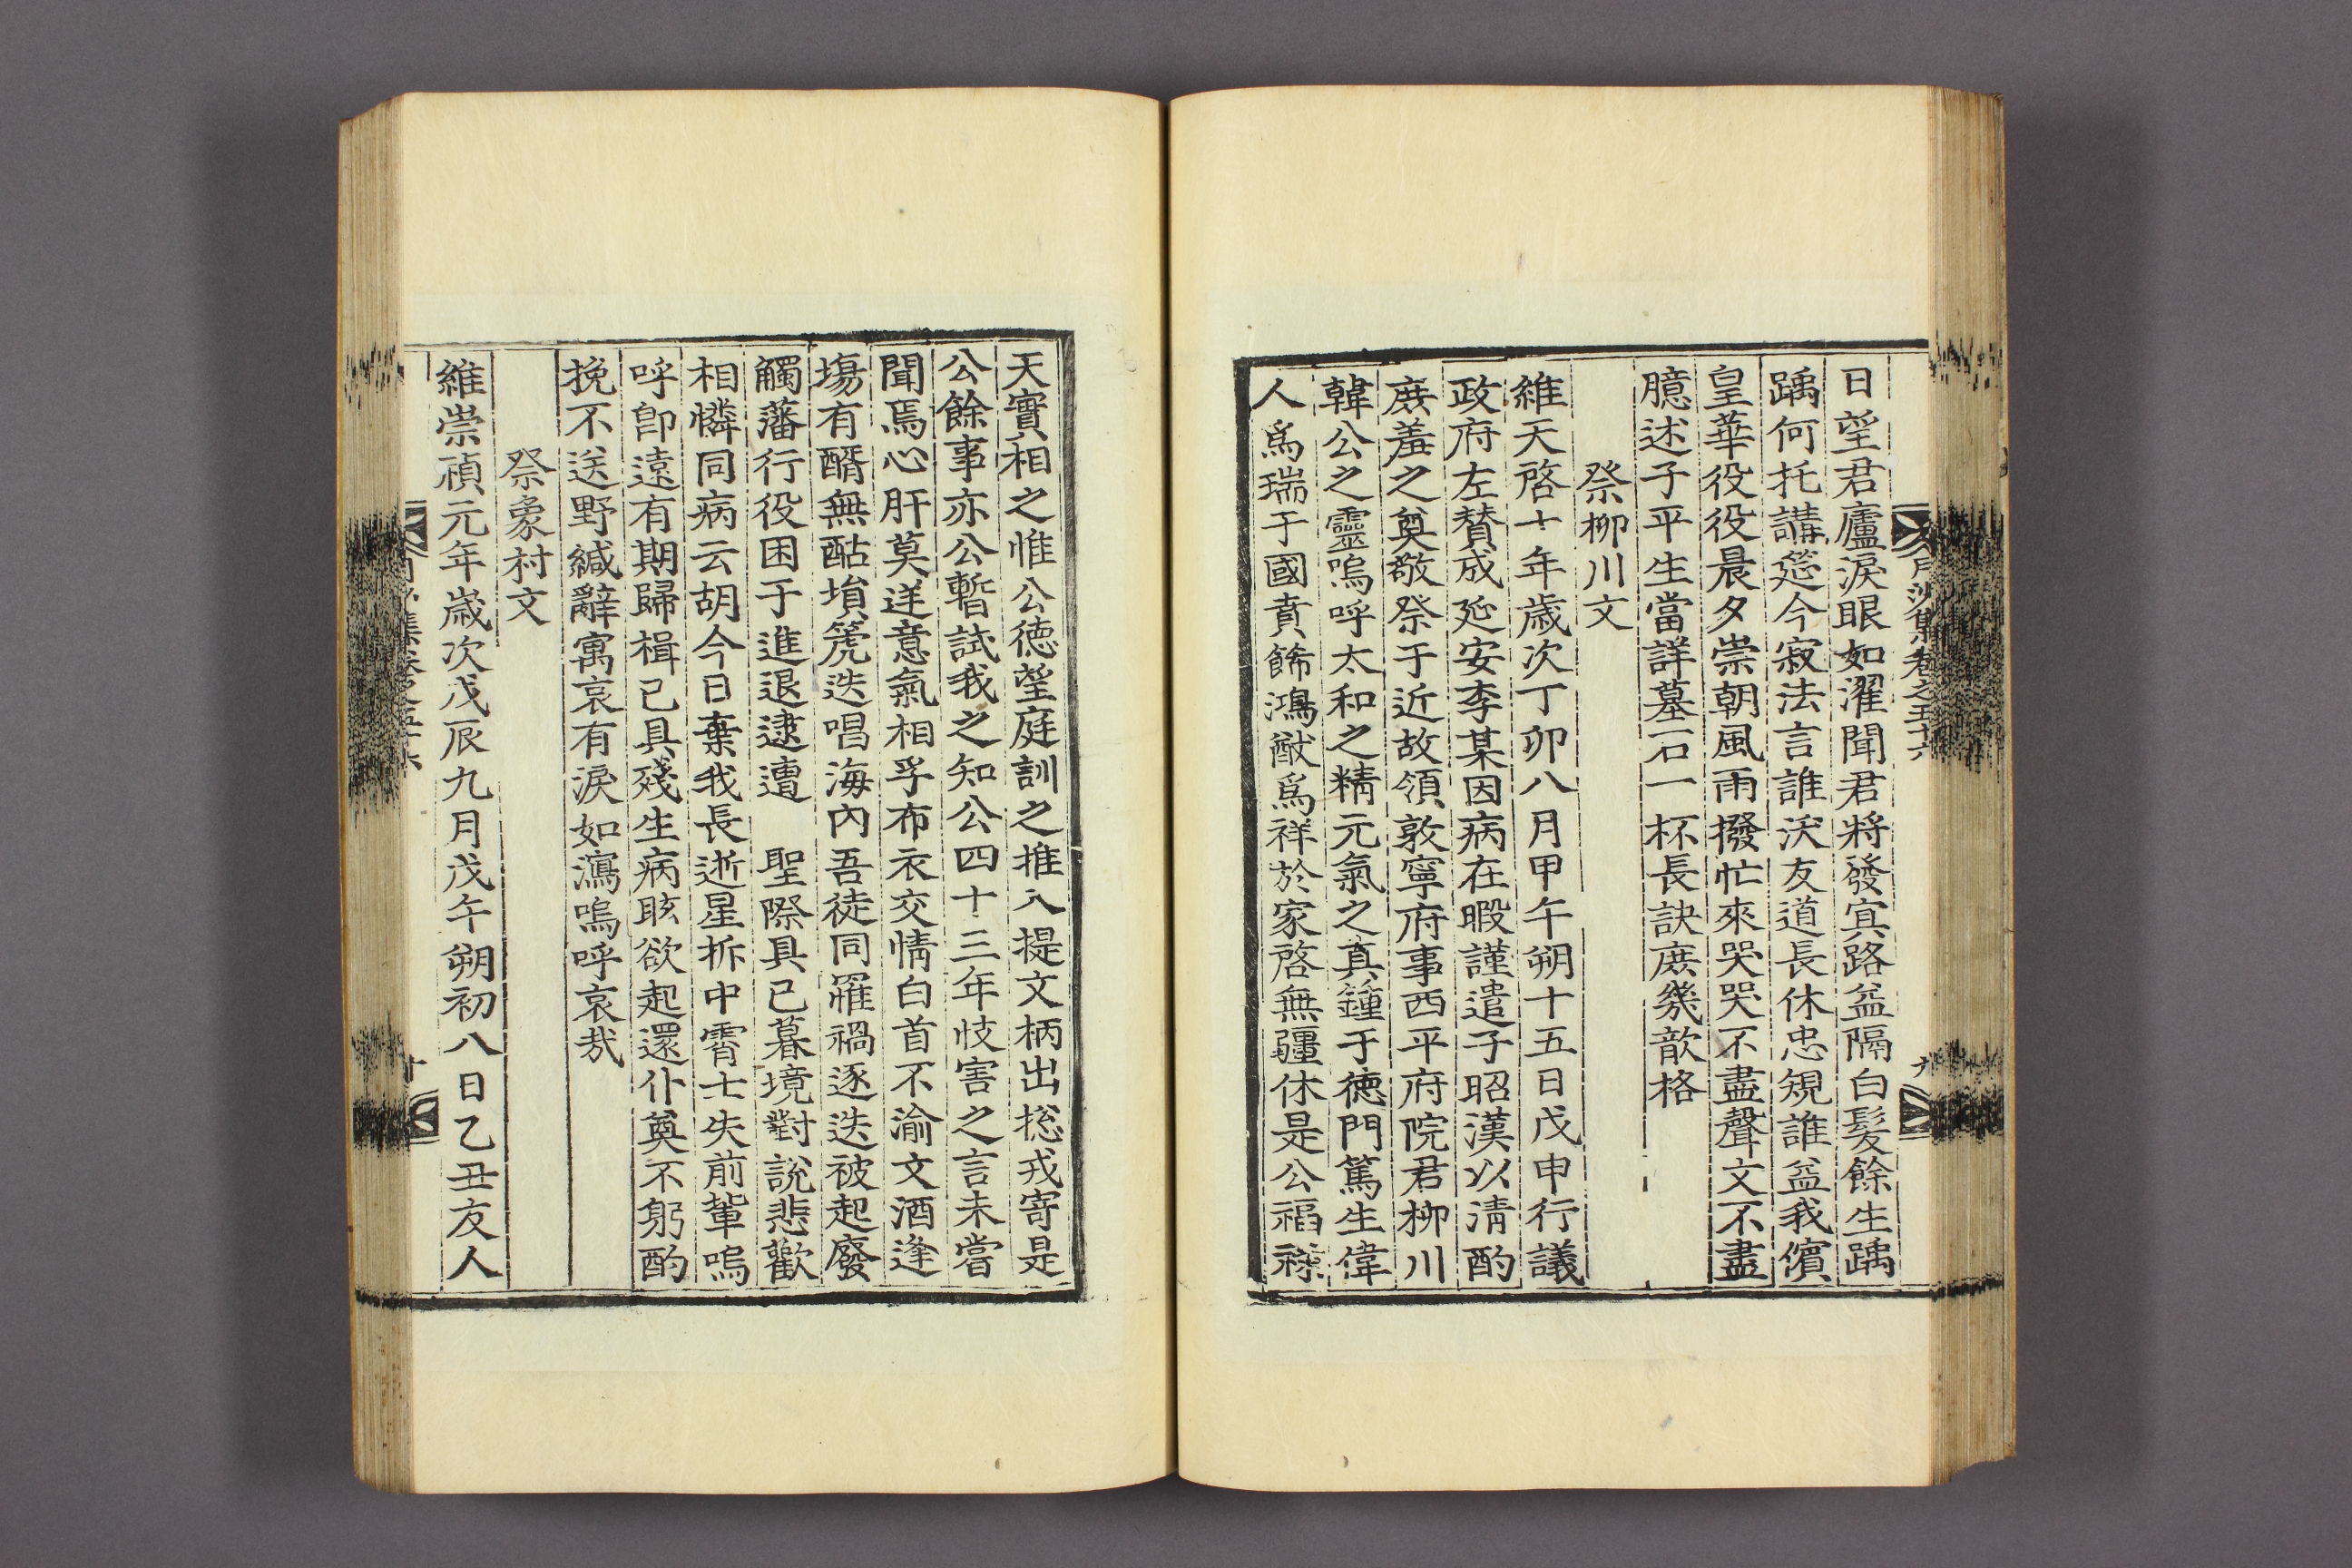 月沙集卷之五十六
九
日望君廬淚眼如濯聞君將發冥路益隔白髮餘生踽
踽何托講筵今寂法言誰沃友道長休忠規誰益我儐
皇華役役晨夕崇朝風雨撥忙來哭哭不盡聲文不盡
臆述子平生當詳墓石一杯長訣庶幾歆格
祭柳川文
維天啓七年歲次丁卯八月甲午朔十五日戊申行議
政府左贊成延安李某因病在暇謹遣子昭漢以淸酌
庶羞之奠敬祭于近故領敦寧府事西平府院君柳川
韓公之靈嗚呼太和之精元氣之眞鍾于德門篤生偉
人爲瑞于國賁餙鴻猷爲祥於家啓無疆休是公福祿
天實相之惟公德望庭訓之推入提文柄出摠戎寄是
公餘事亦公暫試我之知公四十三年忮害之言未嘗
聞焉心肝莫逆意氣相孚布衣交情白首不渝文酒逢
塲有醑無酤塤箎迭唱海內吾徒同罹禍逐迭被起廢
觸藩行役困于進退逮遭　聖際具已暮境對說悲歡
相憐同病云胡今日棄我長逝星拆中霄士失前輩嗚
呼卽遠有期歸楫已具殘生病昡欲起還仆奠不躬酌
挽不送野緘辭寓哀有淚如瀉嗚呼哀哉
祭象村文
維崇禎元年歲次戊辰九月戊午朔初八日乙丑友人
十